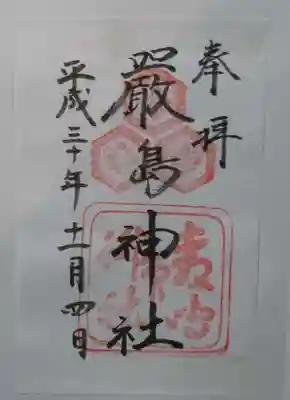 奉拝
嚴島神社
平成三十年十一月四日